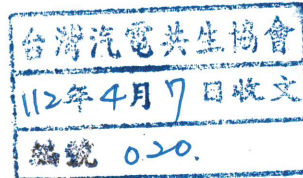 台灣汽電共生協會
112年4月7日收文
編號 020.